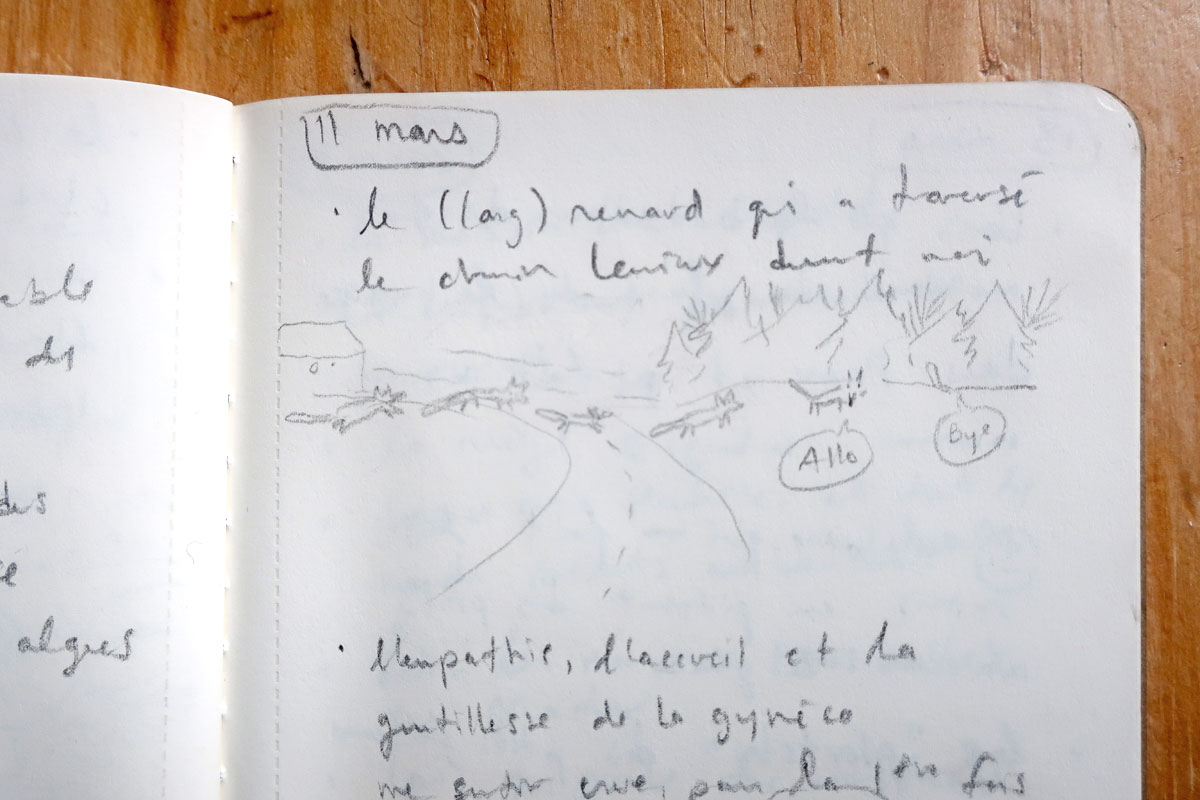 able
des
des
é
algues
11 mars
• le (long) renard qui a traversé
le chemin Lemieux devant moi
Allo
Bye
• l'empathie, l'accueil et la
gentillesse de la gynéco
me sentir, pour la 1ère fois